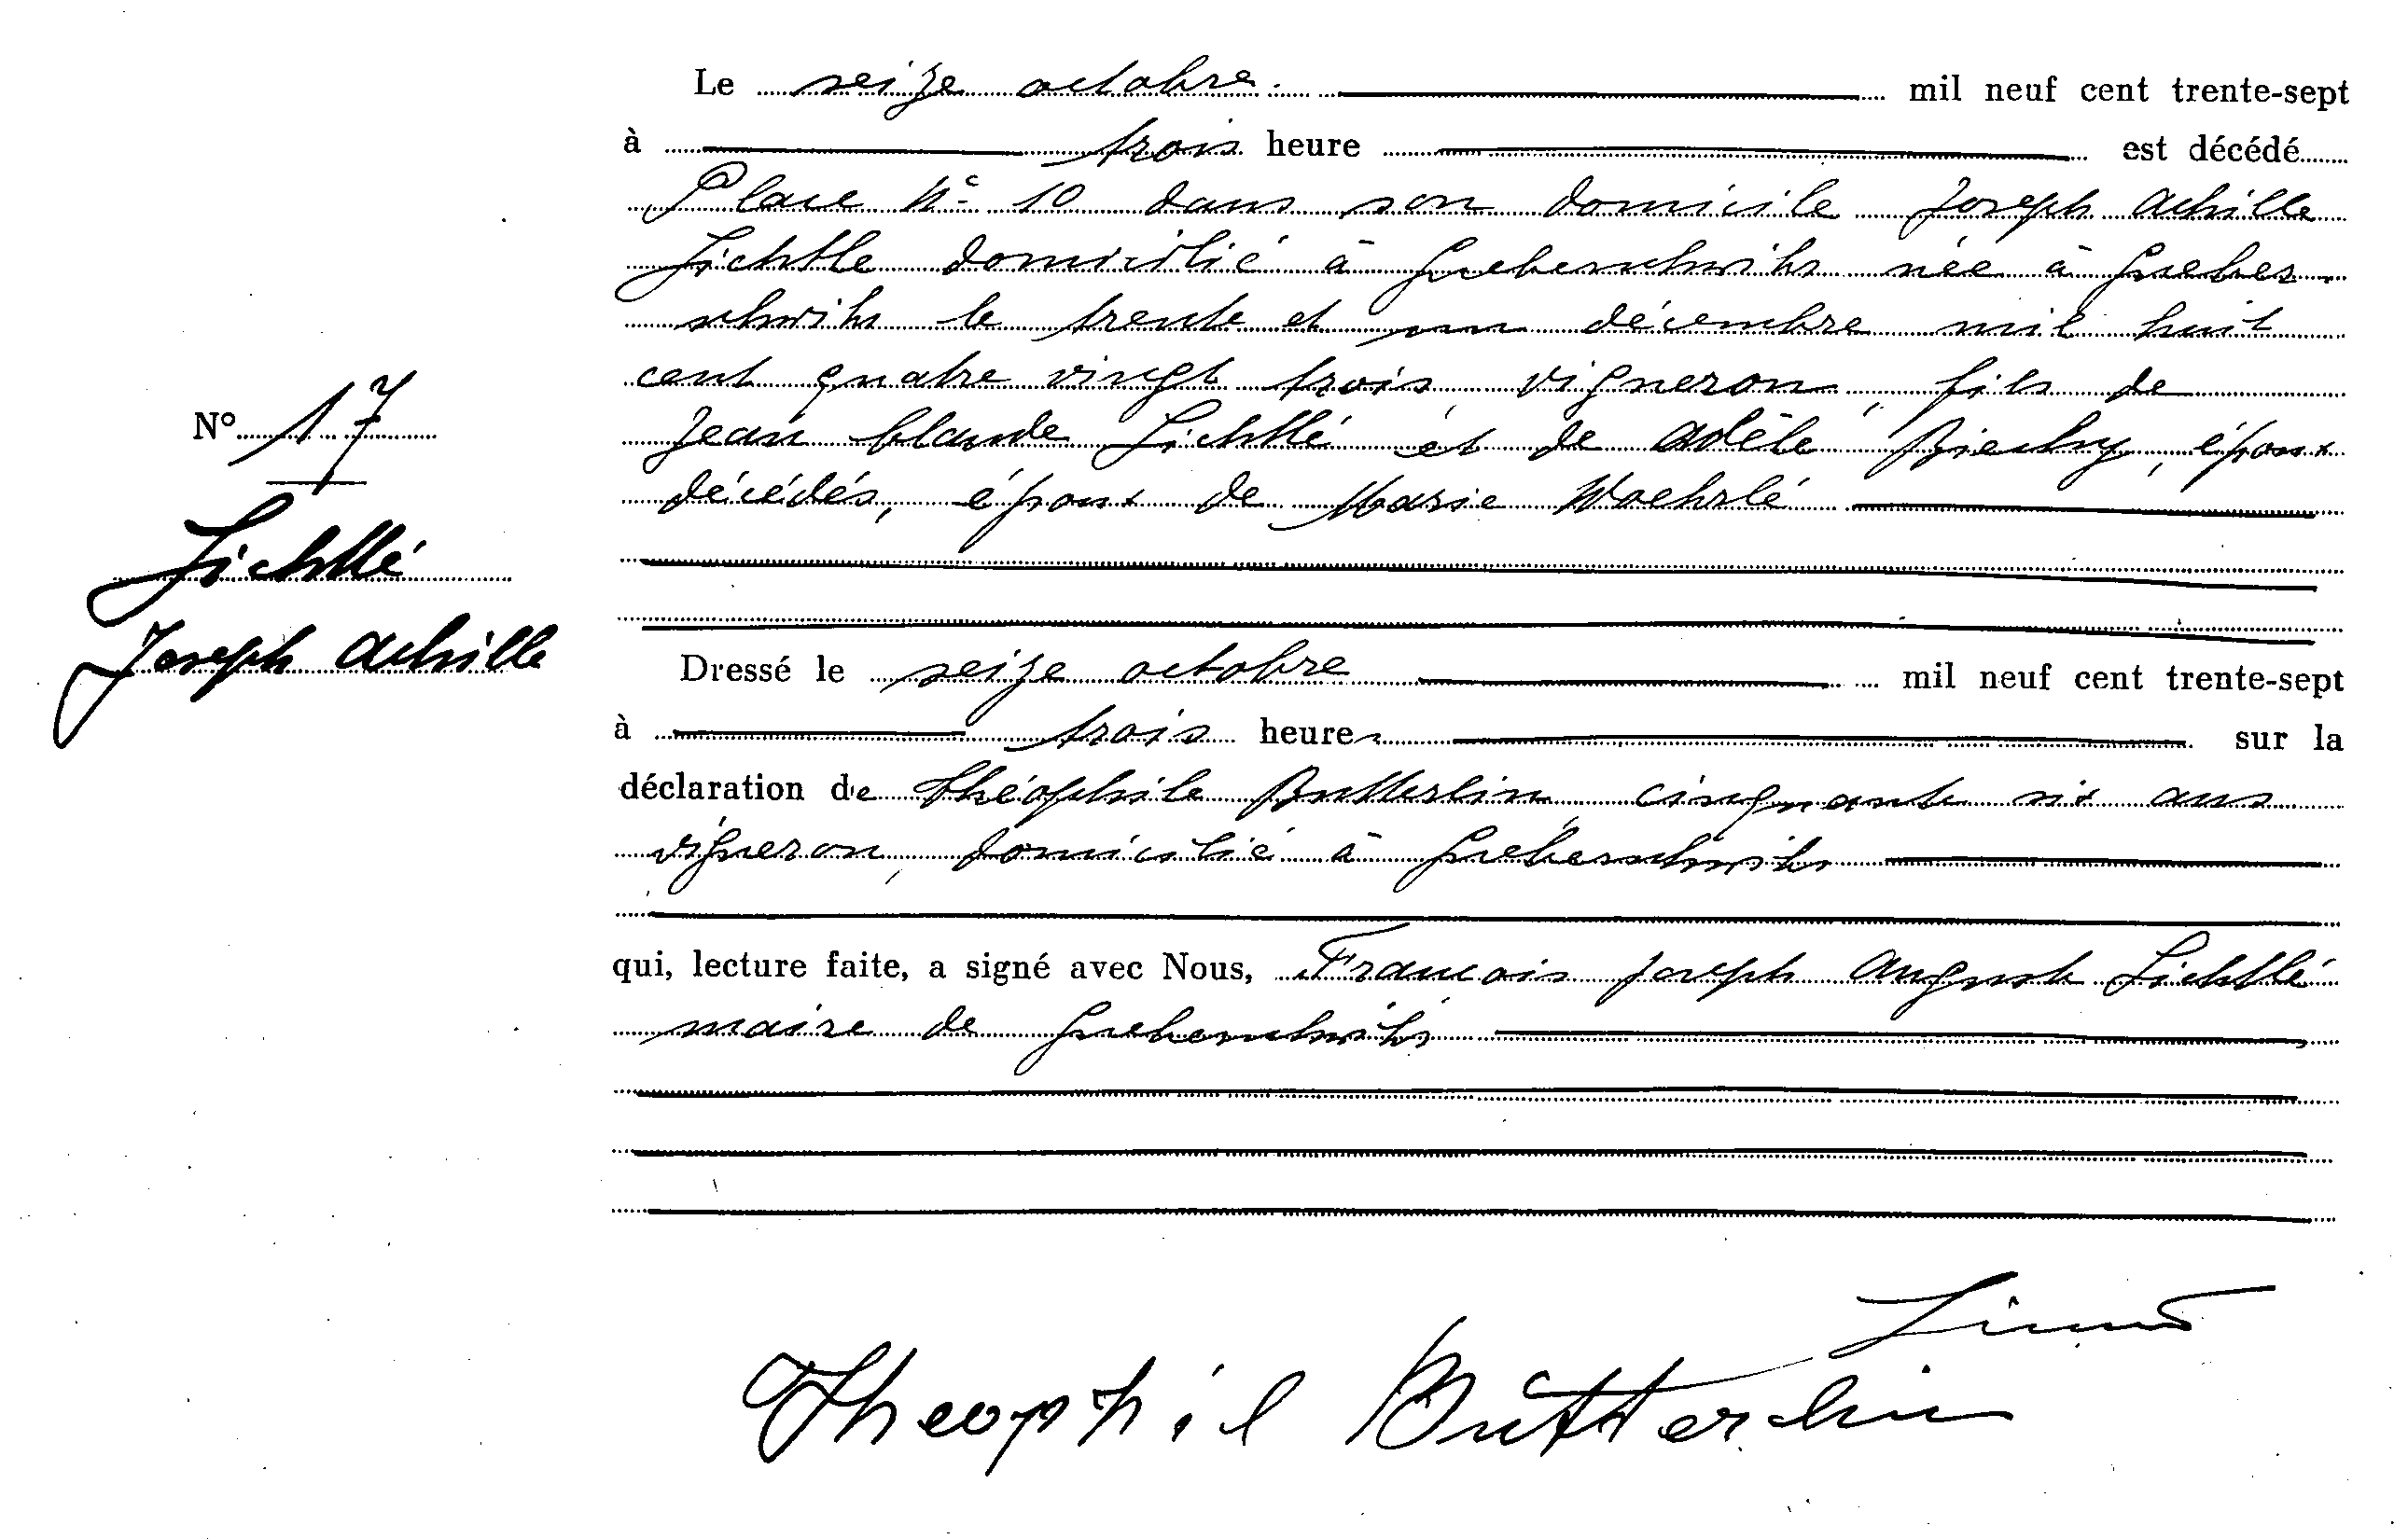 Le seize octobre. mil neuf cent trente-sept
à trois heure est décédé
Place N° 10 dans son domicile Joseph Achille
Lichtle domicilié à Gueberschwihr née à Gueber-
schwihr le trente et un décembre mil huit
cent quatre vingt trois, vigneron, fils de
Jean Claude Lichtlé et de Adèle Biechy, époux
décédés, époux de Marie Woehrlé
N° 17
Lichtlé
Joseph Achille
Dressé le seize octobre mil neuf cent trente-sept
à trois heures sur la
déclaration de Théophile Butterlin, cinquante six ans
vigneron, domicilié à Gueberschwihr
qui, lecture faite, a signé avec Nous, Francois Joseph August Lichtlé
maire de Gueberschwihr
Theophil Bütterlin